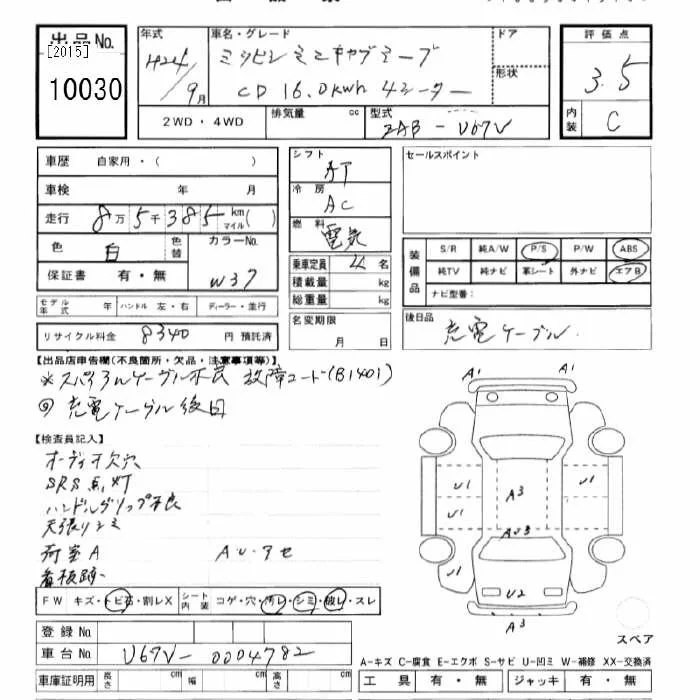 出品No.
[2015]
10030
年式
H24/9月
車名・グレード
ミツビシ ミニキャブミーブ
CD 16.0kwh 4シーター
ドア
形状
2WD・4WD
排気量 cc
型式
ZAB-U67V
評価点
3.5
内装
C
車歴 自家用・( )
車検 年 月
走行 8万5千385km マイル( )
色 白 色替
カラーNo.
W37
保証書 有・無
モデル年式 年 ハンドル 左・右 ディーラー・並行
リサイクル料金 8340 円 預託済
シフト
AT
冷房
AC
燃料
電気
乗車定員 4名
積載量 kg
総重量 kg
名変期限
月 日
セールスポイント
装備品
S/R 純A/W P/S P/W ABS
純TV 純ナビ 革シート 外ナビ エアB
ナビ型番:
後日品
充電ケーブル
【出品店申告欄(不良箇所・欠品・注意事項等)】
※スパイラルケーブル不良 故障コード(B1401)
充電ケーブル後日
【検査員記入】
オーディオ欠穴
SRS点灯
ハンドルグリップ不良
天張りシミ
荷室A
AU・アセ
看板跡
FW キズ・トビ石・割レX シート内装 コゲ・穴・汚レ・シミ・破レ・スレ
登録No
車台No U67V-0004782
車庫証明用 長さ cm 幅 cm 高さ cm
A1 A1
U1 A3 U1
U1 AU3
U1 U2 U1
A3
スペア
A-キズ C-腐食 E-エクボ S-サビ U-凹ミ W-補修 XX-交換済
工具 有・無 ジャッキ 有・無